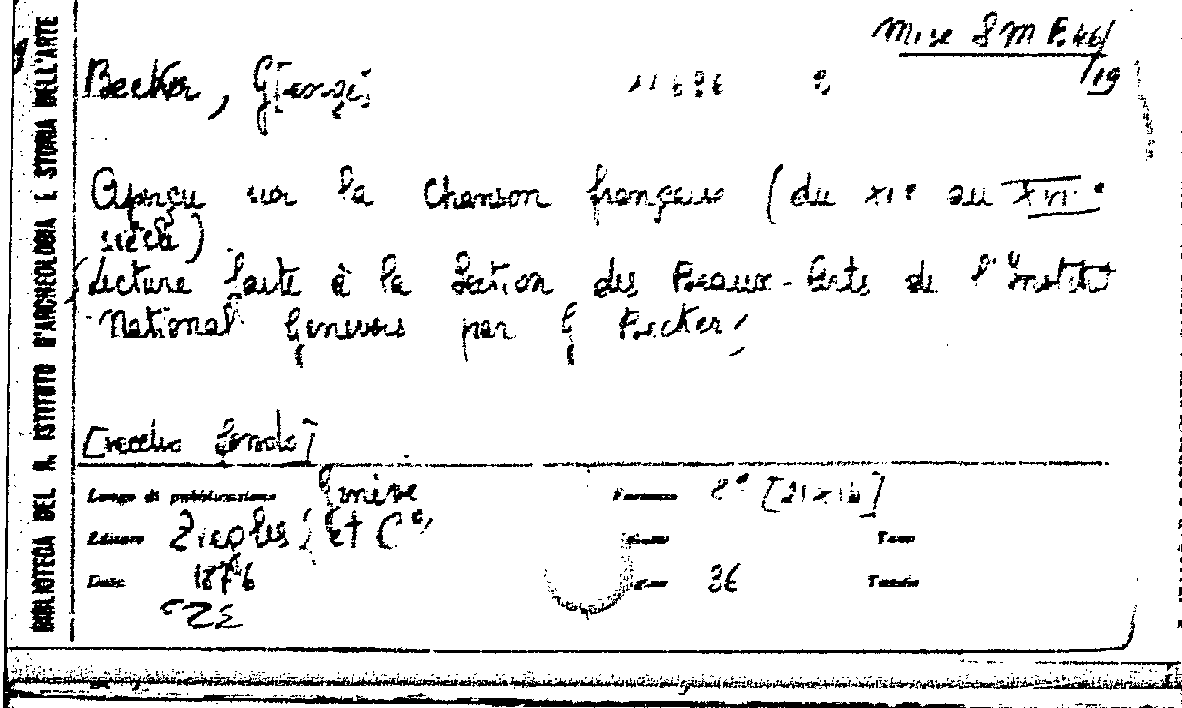 BIBLIOTECA DEL R. ISTITUTO D'ARCHEOLOGIA E STORIA DELL'ARTE
Misc S M B 46/
19
Becker, Georges
Aperçu sur la Chanson française (du XIe au XVIIe
siècle)
Lecture faite à la Section des Beaux-Arts de l'Institut
National Genevois par G Becker,
[vecchio fondo]
Luogo di pubblicazione Genève Formato 8° [21x16]
Editore Ziegler et Cie, Tavv
Data 1876 36 Tavole